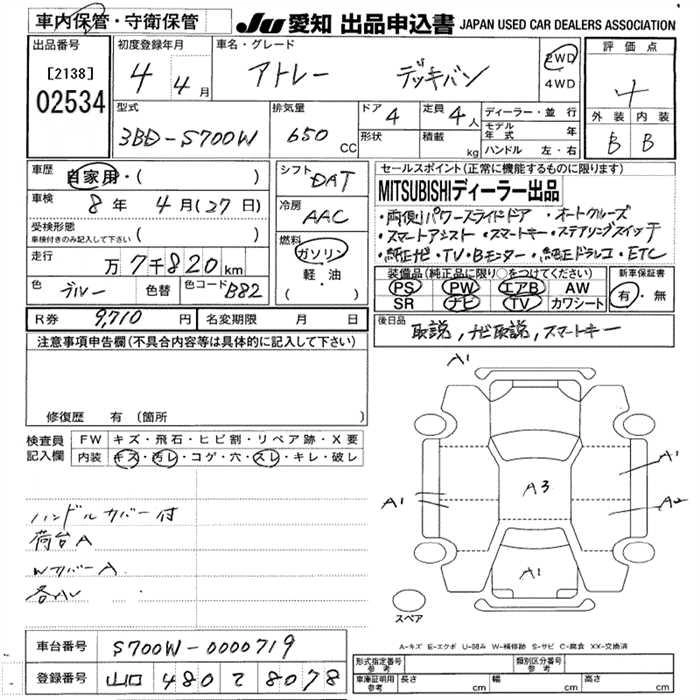 車内保管・守衛保管
JU 愛知 出品申込書 JAPAN USED CAR DEALERS ASSOCIATION
出品番号
[2138]
02534
初度登録年月
4年 4月
車名・グレード
アトレー デッキバン
2WD
4WD
評価点
4
外装 内装
B B
型式
3BD-S700W
排気量
650 CC
ドア 4
形状
定員 4人
積載 kg
ディーラー・並行
モデル年式 年
ハンドル 左・右
車歴
自家用・( )
車検
8年 4月(27日)
受検形態
車検付きのみ記入して下さい ( )
走行
万7千820km
色 ブルー 色替
色コード B82
シフト DAT
冷房 AAC
燃料
ガソリン
軽・油
( )
セールスポイント(正常に機能するものに限ります)
MITSUBISHIディーラー出品
・両側パワースライドドア ・オートクルーズ
・スマートアシスト ・スマートキー・ステアリングスイッチ
・純正ナビ・TV・Bモニター・純正ドラレコ・ETC
装備品(純正品に限り○をつけてください)
PS PW エアB AW
SR ナビ TV カワシート
新車保証書
有・無
R券 9,710円 名変期限 月 日
後日品
取説,ナビ取説,スマートキー
注意事項申告欄(不具合内容等は具体的に記入して下さい)
修復歴 有 (箇所 )
検査員記入欄
FW キズ・飛石・ヒビ割・リペア跡・X要
内装 キズ・汚レ・コゲ・穴・スレ・キレ・破レ
ハンドルカバー付
荷台A
WカバーA
A1
A1
A1
A3
A2
A1
スペア
A-キズ E-エクボ U-凹み W-補修跡 S-サビ C-腐食 XX-交換済
車台番号 S700W-0000719
登録番号 山口 480 て 8078
形式指定番号 参考
類別区分番号 参考
車庫証明用 参考 長さ cm 幅 cm 高さ cm